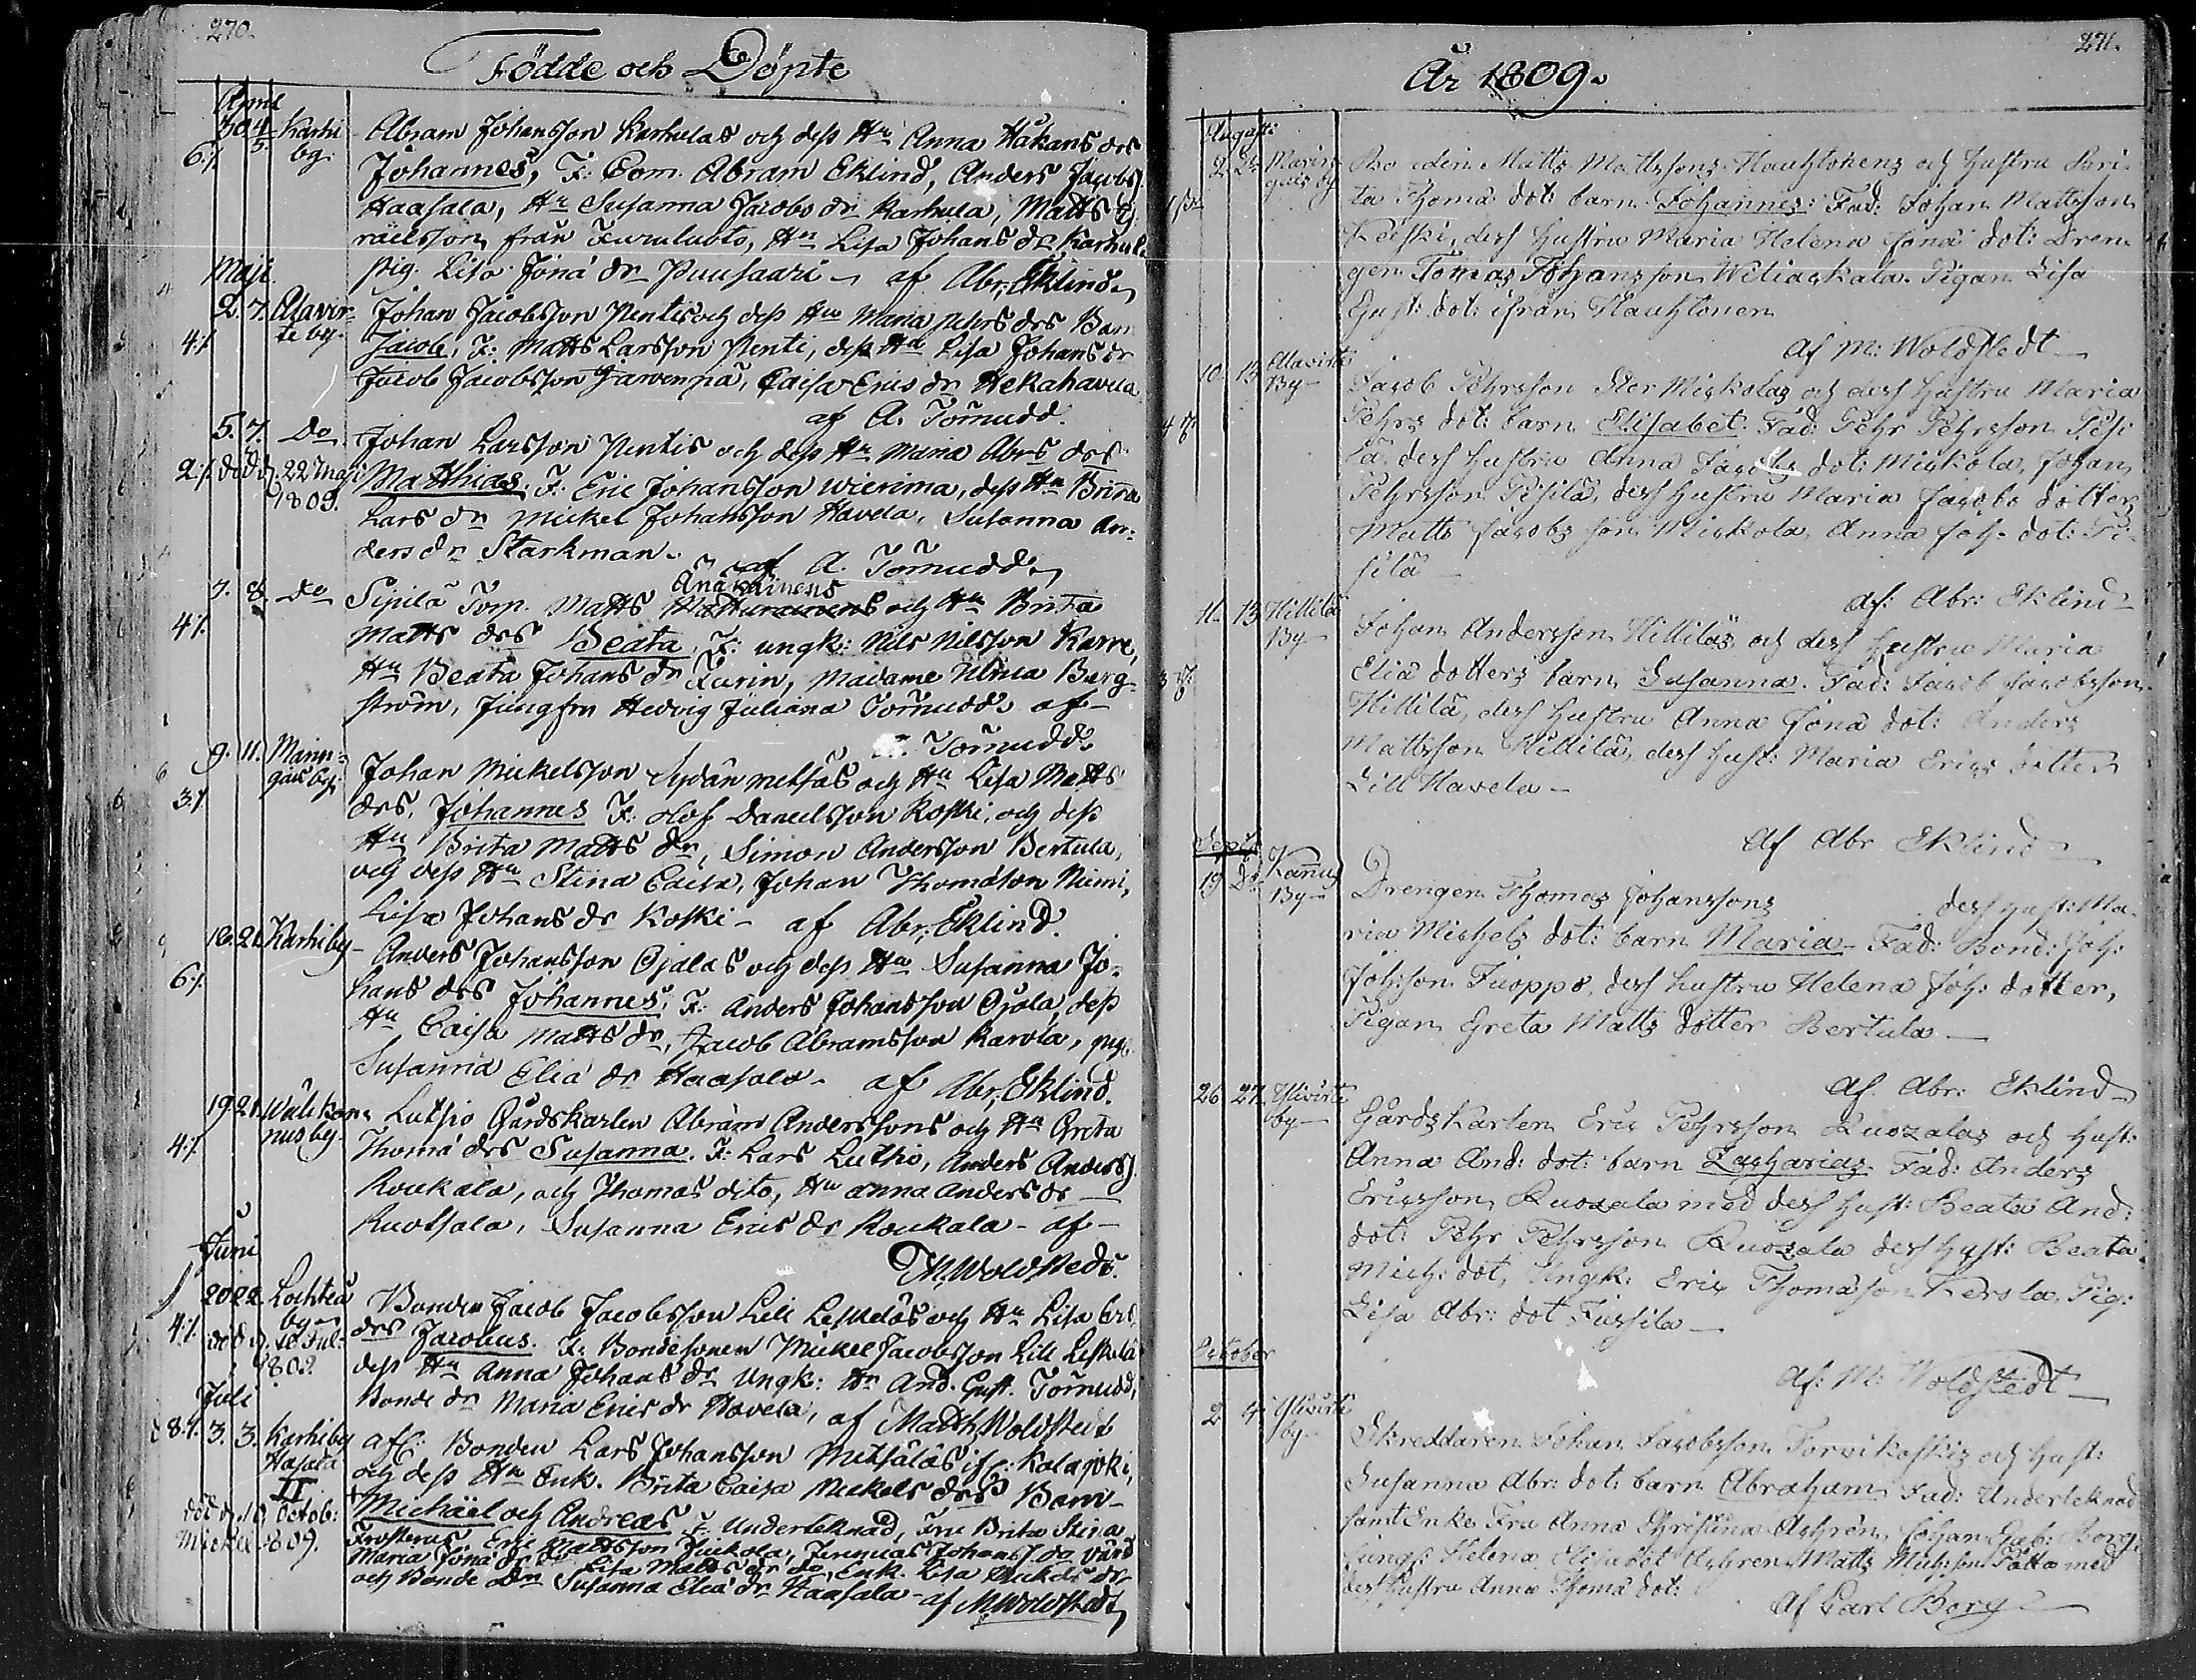 270.
Födde och Döpte
30 4/5. Karhi by. Abram Johansson Karhulas och dess Hu Anna Håkans drs
6/. Johannes, F: Com. Abram Eklind, Anders Jacobs
Haasala, Hu Susanna Jacobs dr Karhula, Matts
räelsson från, Hu Lisa Johans dr Karhula
pig. Lisa Jona dr Puusaari – af Abr. Eklind
Maji
2. 7. Alavirte by. Johan Jacobsson Pentis och dess Hu Maria Pehrs drs Barn
4/. Jacob, F: Matts Larsson Penti, dess Hu Lisa Johans dr
Jacob Jacobsson Jarvenpä, Caisa Erics dr Hekahavela
af A. Törnudd.
5. 7. Do Johan Larsson Pentis och dess Hu Maria Abrs drs
2/. död d. 22 Maji Matthias. F: Eric Johansson Wierima, dess Hu Brita
1809. Lars dr Mickel Johansson Havela, Susanna An-
ders dr Starkman.
af A. Törnudd
Anakainens
7. 8. Do Sipilä Torp. Matts och Hu Brita
4/. Matts drs Beata. F: ungk: Nils Nilsson Karre,
Hu Beata Johans dr Turin, Madame Ulrica Berg-
ström, Jungfru Hedvig Juliana Törnudd af
Törnudd
9. 11. Marin-
gais by. Johan Mickelsson Sydänmetsäs och Hu Lisa Matts
3/. drs, Johannes F: Olof Danielsson Koski, och dess
Hu Brita Matts dr, Simon Andersson Bertula,
och dess Hu Stina Caisa, Johan Thomasson Niemi,
Lisa Johans dr Koski – af Abr. Eklind.
16. 21. Karhi by – Anders Johansson Ojalas och dess Hu Susanna Jo-
6/. hans drs Johannes, F: Anders Johansson Ojala, dess
Hu Caisa Matts dr, Jacob Abramsson Karola, pig.
Susanna Elia dr Haasala – af Abr. Eklind.
19 21. Wälikan-
nus by. Luthio Gårdskarlen Abram Anderssons och Hu Greta
4/. Thoma drs Susanna. F: Lars Luthio, Anders Anders
Roukala, och Thomas dito, Hu Anna Anders dr –
Ruotsala, Susanna Erics dr Roukala – af –
M. Woldstedt.
Juni
20 22. Lochteå
by Bonden Jacob Jacobsson Lill Leskeläs och Hu Lisa
4/. död d. 10 Jul. drs Jacobus. F: Bondesonen Mickel Jacobsson Lill Leskelä
1809. dess Hu Anna Johans dr Ungk: Hr And. Gust. Törnudd,
Juli
Bonde dr Maria Erics dr Havela, af Matth. Woldstedt
8/. 3. 3. Karhi by
Hasala Bonden Lars Johansson Metsäläs if: Kalajoki,
II
och dess Hu Enk. Brita Caisa Mickels drs Barn –
död d. 10 Octob:
Mickel 1809. Michäel och Andreas F: Underteknad, Fru Brita Stina
Frosterus, Eric Mattsson Juckola, Jeremias Johans
Maria Jona dr do Lisa Matts dr do, Enk. Lisa Mickels dr
och Bonde Dr Susanna Elia dr Haasala – af M. Woldstedt
271.
År 1809.
Augusti
2 2 Maringais by Bonden Matts Mattssons Hauhtonens och hustru Bri-
ta Thoma dot: barn Johannes: Fad: Johan Mattsson
Keiski, dess hustru Maria Helena Jona dot: Dren-
gen Tomas Johansson Wetiaskala. Pigan Lisa
Gust: dot: ifrån Hauhtonen
Af M: Woldstedt
10. 13 Alavirte
By – Jacob Pehrsson Stor Miskolas och dess hustru Maria
Pehrs dot: barn Elisabet. Fad: Pehr Pehrsson Pesi
lä, dess hustru Anna Jacobs dot: Miskola, Johan
Pehrsson Pesilä, dess hustru Maria Jacobs dotter,
Matts Jacobsson Miskola, Anna Joh: dot: Pe-
silä –
af: Abr: Eklind
11. 13 Hillilä
By – Johan Andersson Hilliläs och dess hustru Maria
Elia dotters barn Susanna. Fad: Jacob Jacobsson
Hillilä, dess hustru Anna Jona dot: Anders
Mattsson Hillilä, dess hust: Maria Erics dotter
Lill Havela –
Af Abr Eklind
Sept:
19 Do Kannus
By – Drengen Thomas Johanssons dess hust: Ma-
ria Michels dot: barn Maria – Fad: Bond: Joh:
Joh:son Juoppo, dess hustru Helena Joh: dotter,
Pigan Greta Matts dotter Bertula –
af. Abr: Eklind
26 27. Ylivirte
by – Gårdskarlen Eric Pehrsson Ruozalas och hust:
Anna And: dot: barn Zacharias. Fad: Anders
Ericsson Ruozala med dess hust: Beata And:
dot: Pehr Pehrsson Ruozala dess hust: Beata
Mich: dot, Ungk: Eric Thomasson Kerola, Pig:
Lisa Abr: dot Jussila –
af: M: Woldstedt
October
2 4 Ylivirte
by – Skreddaren Johan Jacobsson Torvikoskis och hust:
Susanna Abr: dot: barn Abraham Fad: Underteknad
samt Enke Fru Anna Christina Aschren, Johan Gab: Borg,
Jungf: Helena Elisabet Aschren, Matts Mich:son Tatta med
dess hustru Anna Thoma dot:
Af Carl Borg